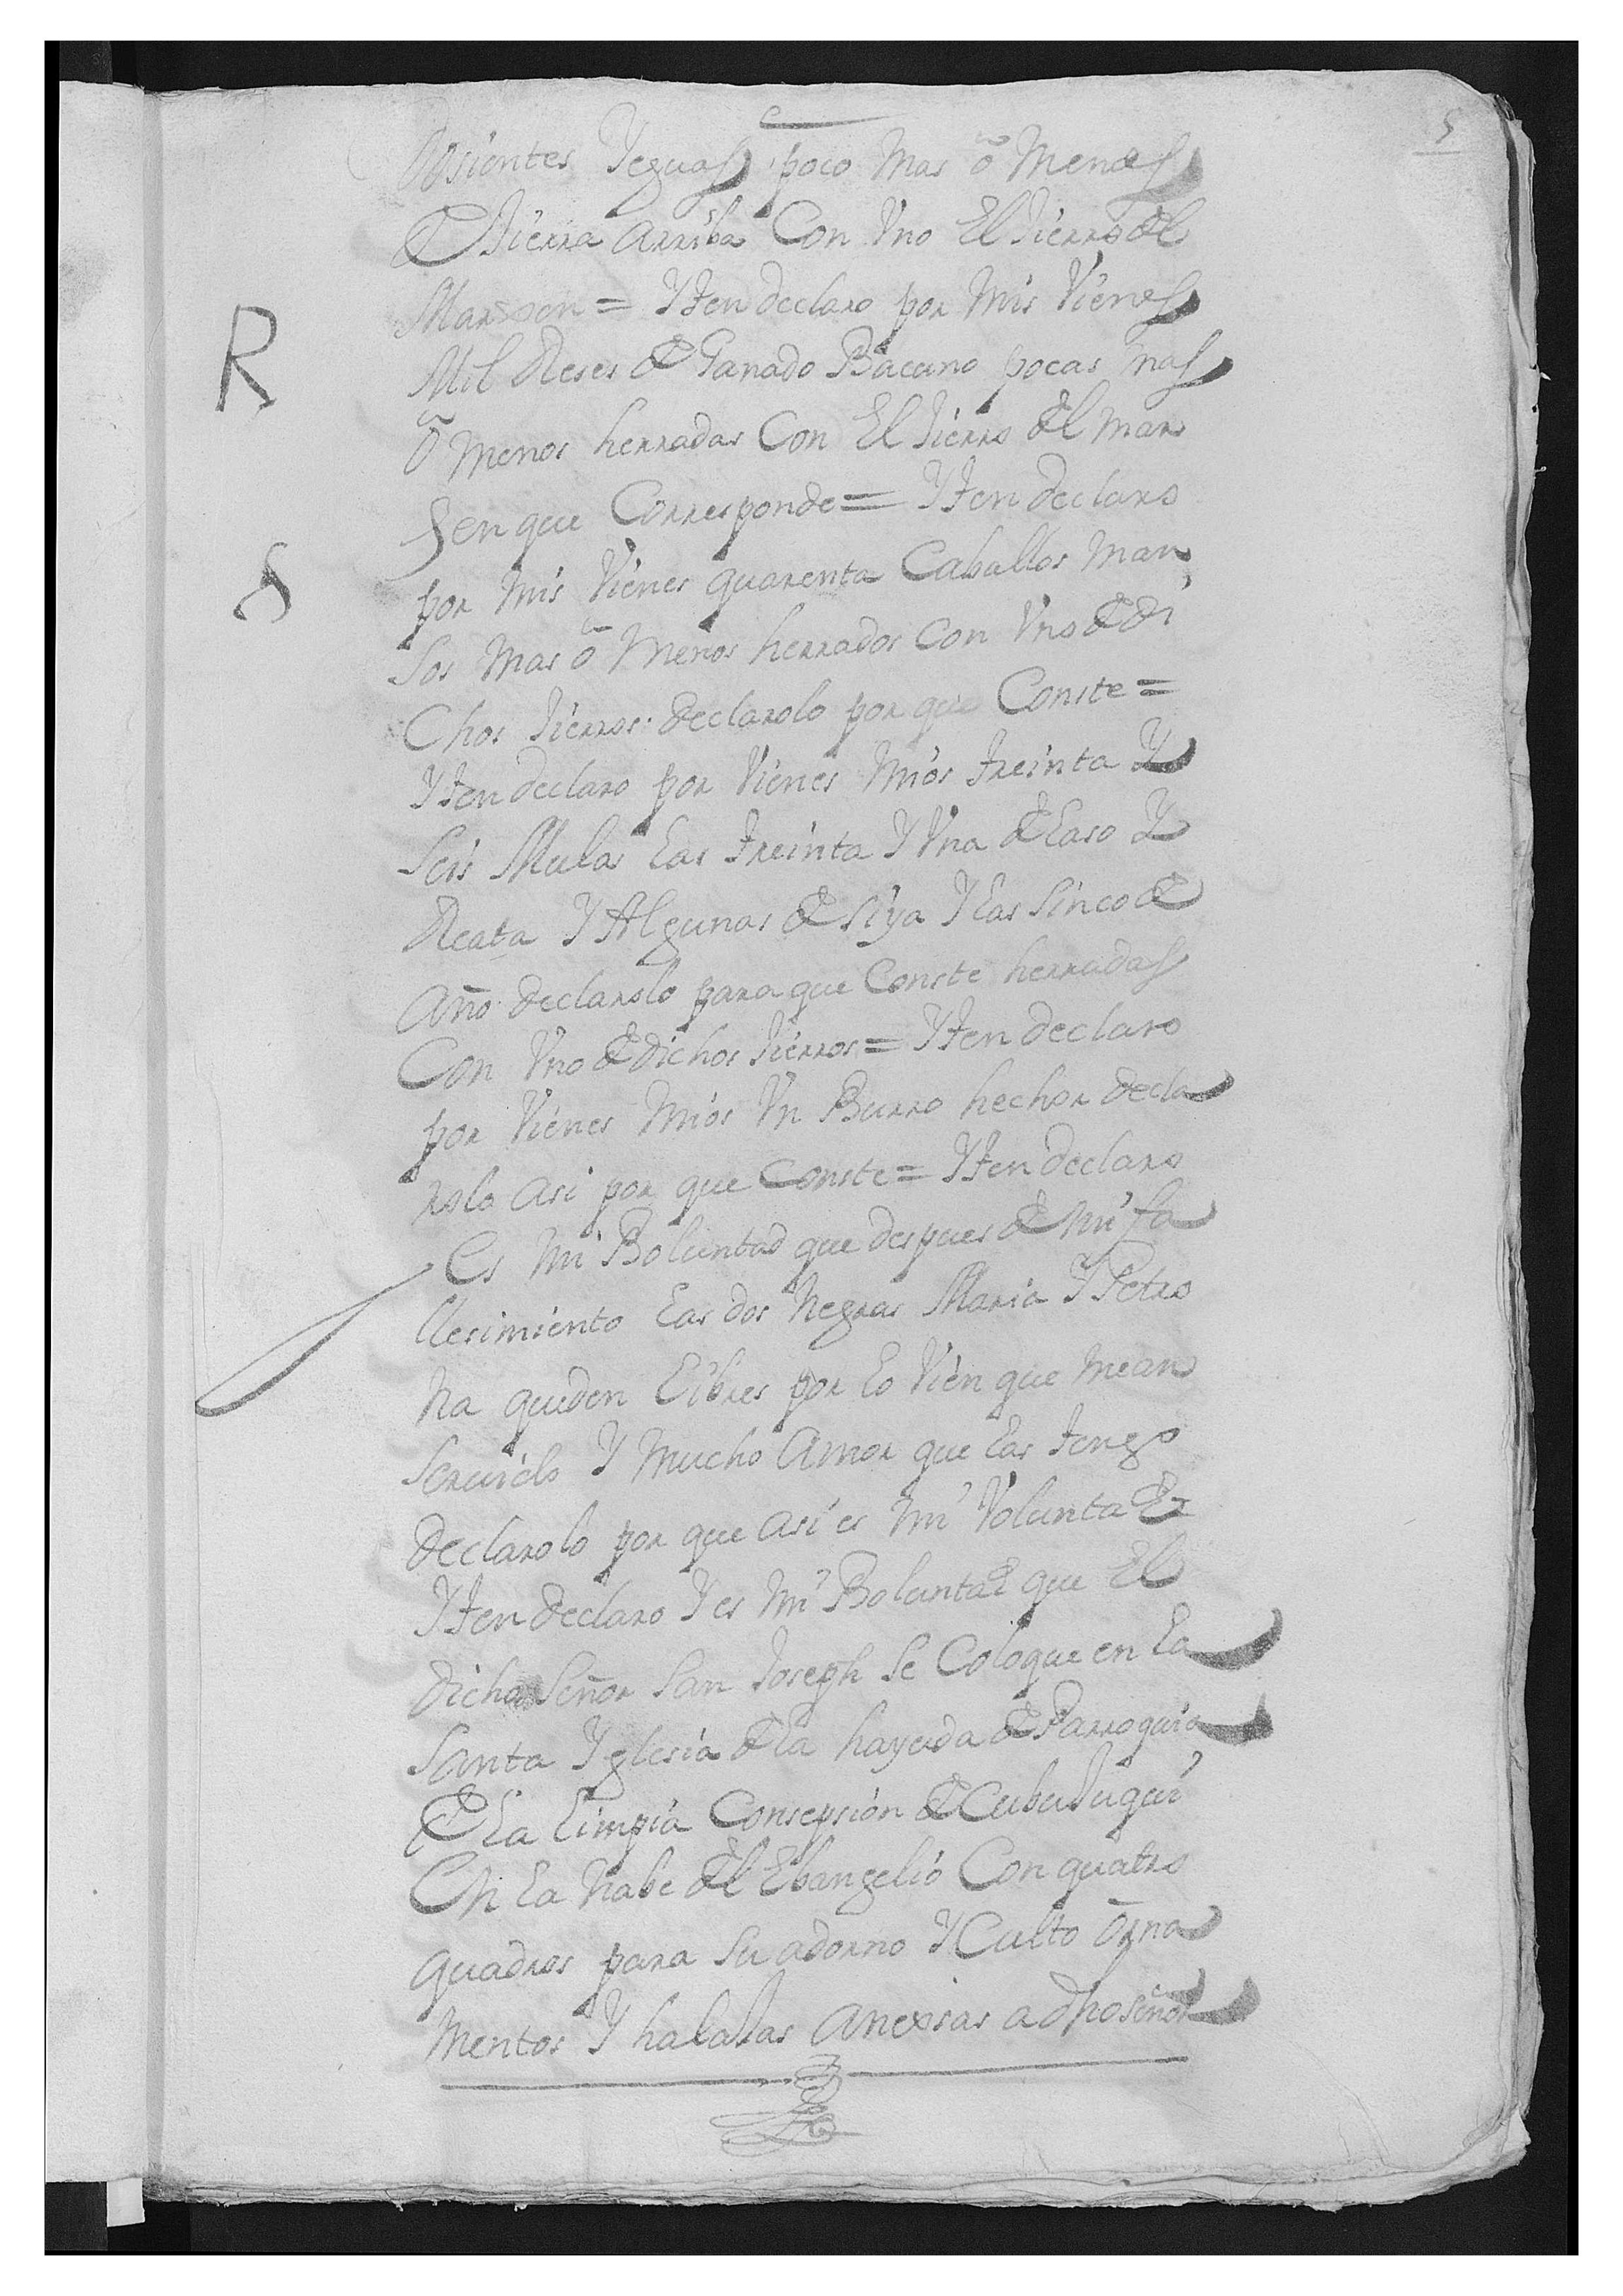 5
Dosientes Yeguas poco mas ô menos
de tierra arriba Con Vno El Jierro del
Marxen = Yten declaro por mis Vienes
R
Mil Reses de Ganado Bacuno pocas mas
ô menos herradas Con El Jierro del mar
Jen que Corresponde = Yten declaro
8
por mis Vienes quarenta Caballos man
sos mas ô menos herrados Con Vno de di
Chos Jierros: declarolo por que Conste =
Yten declaro por Vienes mios treinta Y
Seis Mulas Las treinta Y Vna de Laso Y
Reata Y Algunas de siya Y Las Sinco de
Año declarolo para que Conste herradas
Con Vno de dichos Jierros = Yten declaro
por Vienes mios Vn Burro hechor decla
rolo asi por que Conste = Yten declaro
Es mi Boluntad que despues de mi fa
llesimiento Las dos negras Maria Y Petro
na queden Libres por Lo Vien que mean
seruido Y mucho Amor que Las tengo
declarolo por que asi es mi Voluntad =
Yten declaro Y es mi Boluntad que El
dicho Señor San Joseph Se Coloque en La
Santa Yglesia de La hayuda de Parroquia
de La Limpia Consepsion de
En La Nabe del Ebangelio Con quatro
quadros para Su adorno Y Culto Orna
mentos Y halajas anexsas a dho Señor